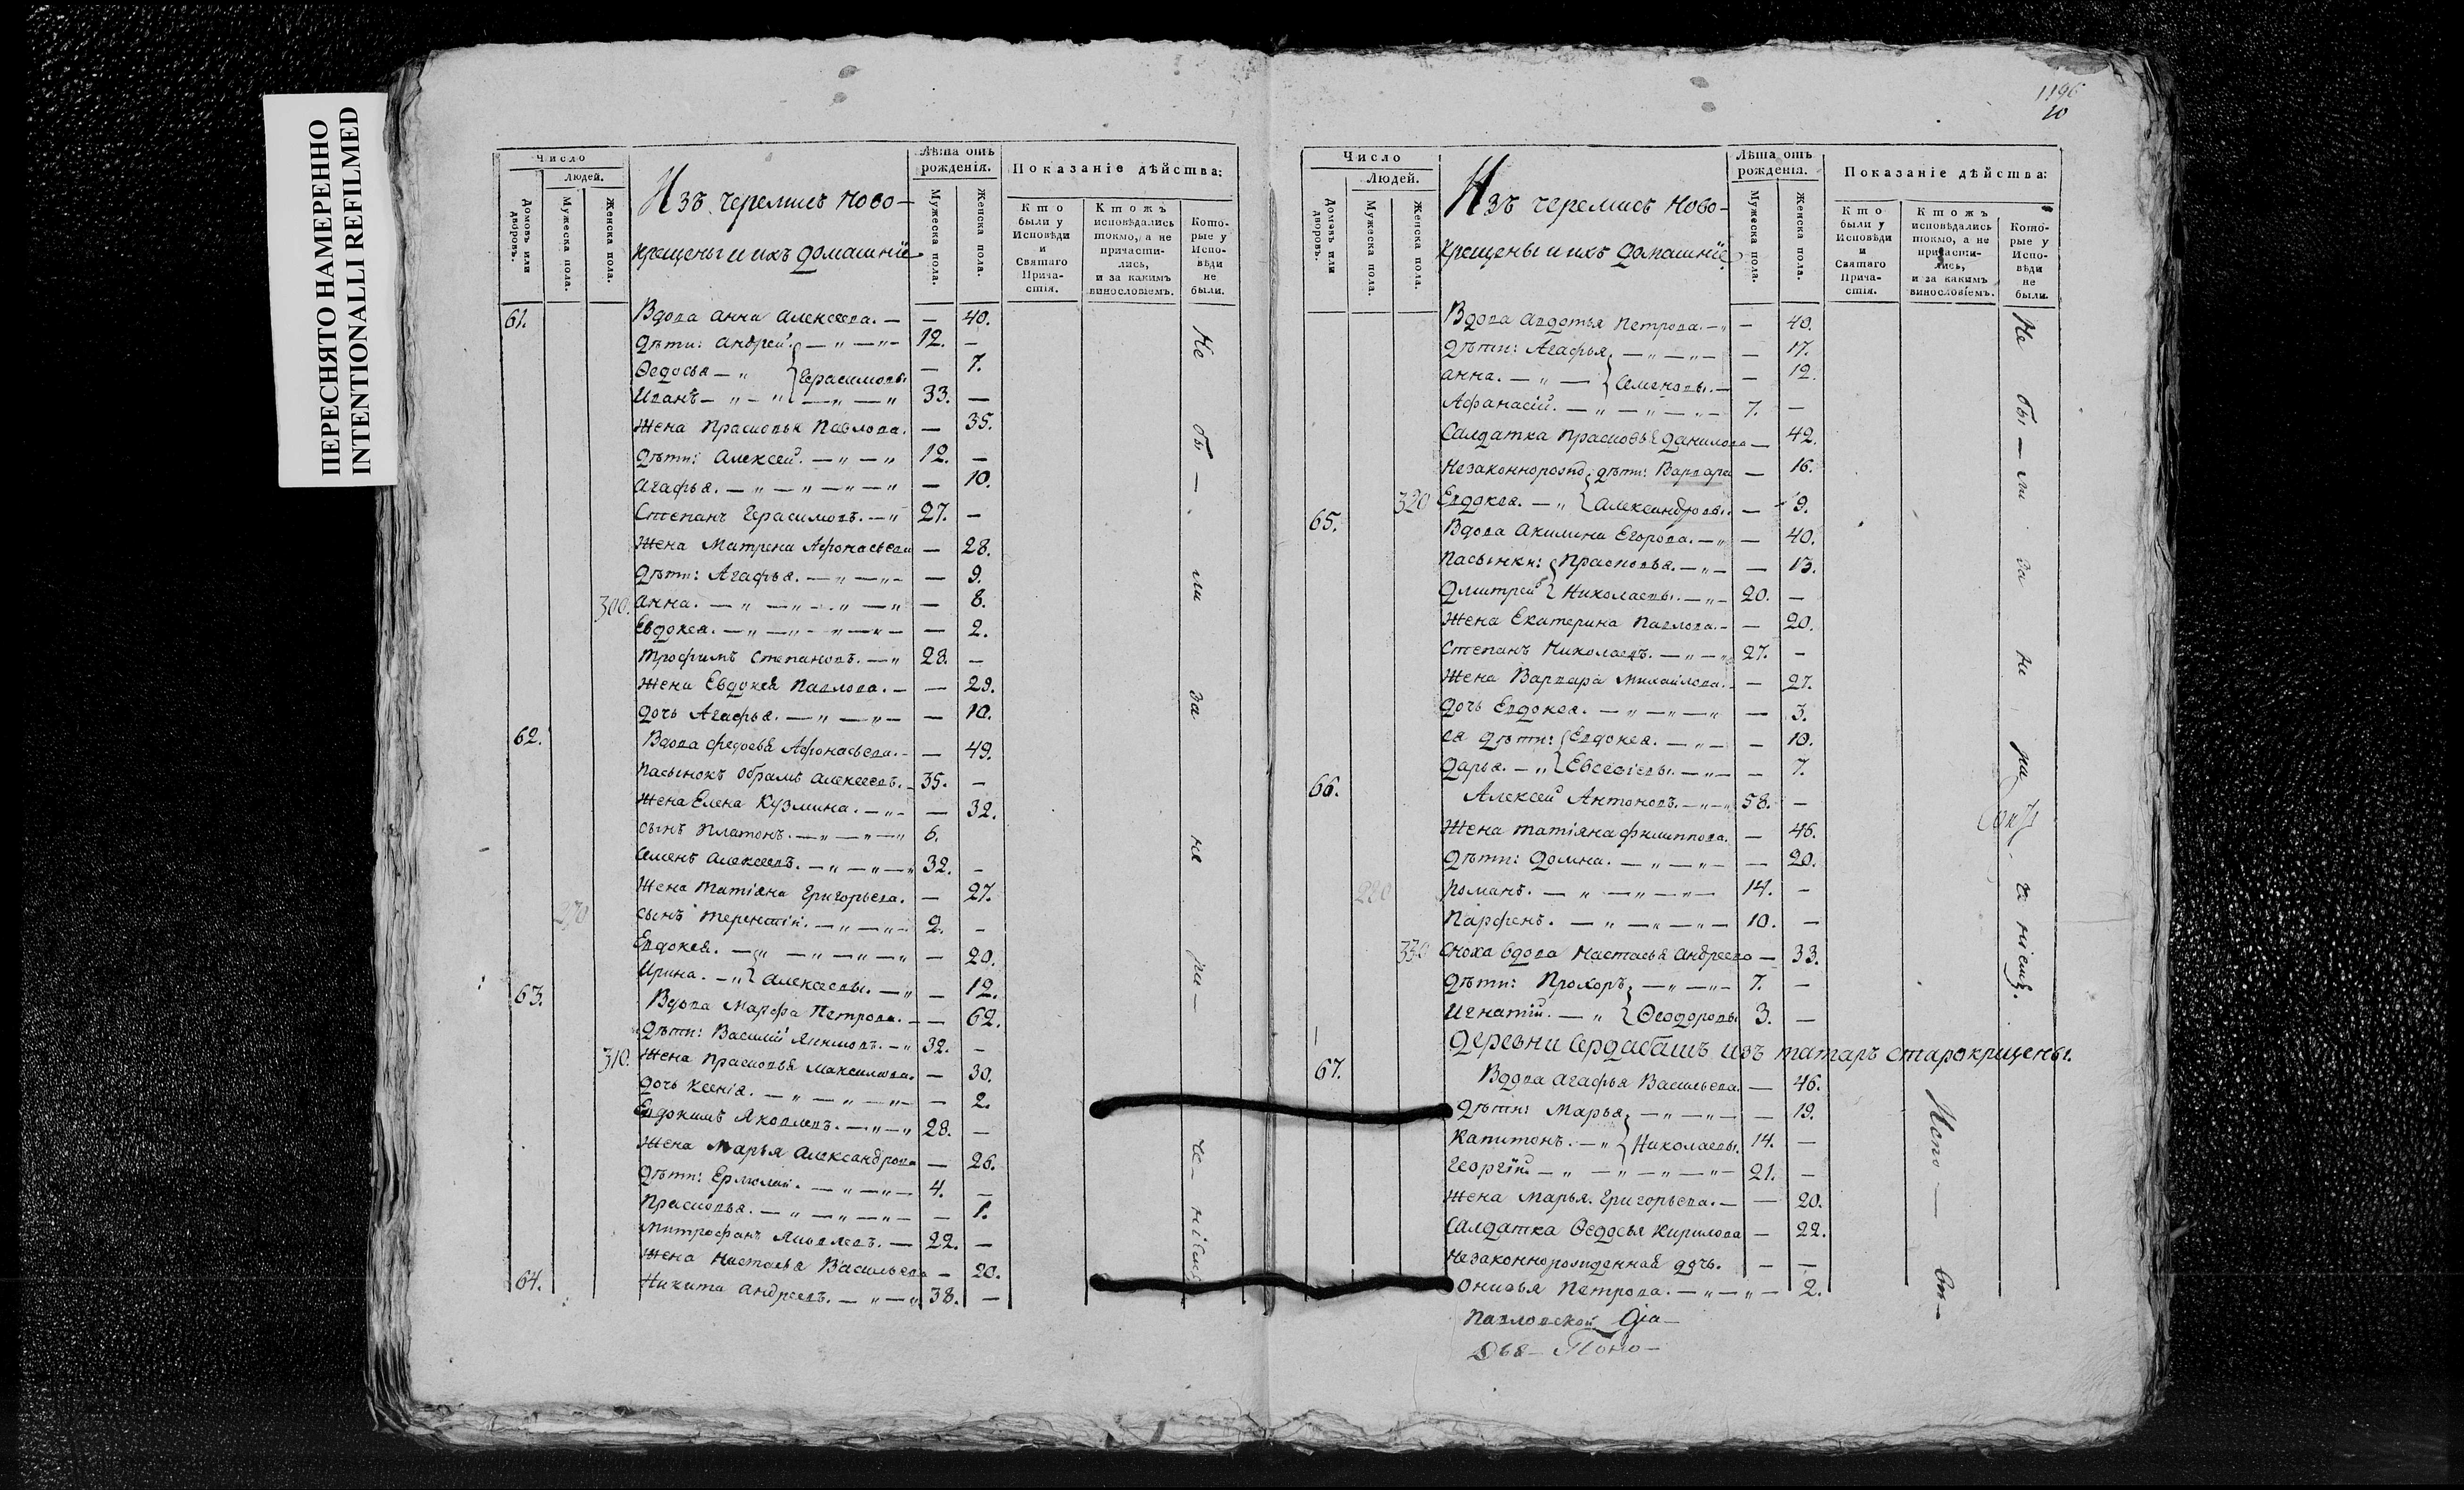 ПЕРЕСНЯТО НАМЕРЕННО
INTENTIONALLI REFILMED
Число
Людей.
Домовъ или дворовъ.
Мужеска пола.
Женска пола.
Изъ черемисъ ново-
крещены и ихъ домашнїе
Лѣта отъ рожденія.
Мужеска пола.
Женска пола.
Показаніе дѣйства:
Кто были у Исповѣди и Святаго Причастія.
Ктожъ исповѣдались токмо, а не причастились, и за какимъ винословіемъ.
Которые у Исповѣди не были.
61. Вдова анна алексеева. — — 40.
Дѣти: андрей. — „ — „ — 12. —
Ѳедосья — „ } Герасимовы — 7.
Иванъ — „ — „ — „ — „ 33. —
Жена Прасковья Павлова. — 35.
Дѣти: Алексей. — „ — „ 12. —
агафья. — „ — „ — „ — „ — 10.
Степанъ Герасимовъ. — „ 27. —
Жена Матрена Афонасьева — 28.
Дѣти: Агафья. — „ — „ — — 9.
300. анна. — „ — „ — „ — „ — 8.
Евдокея. — „ — „ — „ — „ — — 2.
Трофимъ Степановъ. — „ 28. —
Жена Евдокея Павлова. — — 29.
Дочь Агафья. — „ — „ — — 10.
62. Вдова федосья Афонасьева. — — 49.
Пасынокъ Обрамъ алексеевъ. — 35. —
Жена Елена Кузмина. — „ — — 32.
сынъ Платонъ. — „ — „ — „ 6.
Семенъ алексеевъ. — „ — „ — „ 32. —
Жена татіяна Григорьева. — 27.
270 сынъ терентїй. — „ — „ — 2. —
Евдокея. — „ — „ — „ — „ — 20.
Ирина. — „ } алексеевы. — „ — 12.
63. Вдова Марфа Петрова. — — 62.
Дѣти: Василий Якимовъ. — „ 32. —
310. Жена Прасковья Максимова. — 30.
Дочь Ксенія. — „ — „ — „ — — 2.
Евдокимъ Яковлевъ. — „ — „ 28. —
Жена Марья александрова — 26.
Дѣти: Ермолай. — „ — „ — 4. —
Прасковья. — „ — „ — „ — — 1.
Митрофанъ Яковлевъ. — 22. —
Жена Настасья Васильева — 20.
64. Никита андреевъ. — „ — „ 38. —
Не бы — ли за не ра —
1196
10
Число
Людей.
Домовъ или дворовъ.
Мужеска пола.
Женска пола.
Изъ черемисъ ново-
крещены и ихъ домашнїе
Лѣта отъ рожденія.
Мужеска пола.
Женска пола.
Показаніе дѣйства:
Кто были у Исповѣди и Святаго Причастія.
Ктожъ исповѣдались токмо, а не причастились, и за какимъ винословіемъ.
Которые у Исповѣди не были.
Вдова авдотья Петрова. — „ — 40.
Дѣти: Агафья, — „ — „ — — 17.
анна. — „ — } Семеновы. — — 12.
Афанасїй. — „ — „ — „ — 7. —
Салдатка Прасковья данилова — 42.
Незаконнорожд: дѣти: Варвара — 16.
320 Евдокея. — „ } александровы. — 9.
65. Вдова Акилина Егорова. — „ — 40.
Пасынки: } Прасковья. — „ — — 13.
Дмитрей } Николаевы. — „ — 20. —
Жена Екатерина Павлова. — — 20.
Степанъ Николаевъ. — „ — „ 27. —
Жена Варвара михайлова. — — 27.
Дочь Евдокея. — „ — „ — „ — 3.
ея Дѣти: } Евдокея. — „ — — 10.
Дарья. — „ } Евсевіевы. — „ — — 7.
66. Алексей Антоновъ. — „ — „ 58. —
Жена татіяна филиппова. — 46.
Дѣти: Домна. — „ — „ — — 20.
220 Романъ. — „ — „ — „ — 14. —
Парфенъ. — „ — „ — „ — 10. —
330 сноха вдова настасья андреева — 33.
Дѣти: Прохоръ, — „ — „ — 7. —
Игнатїй. — „ } Ѳеодоровы 3. —
Деревни Сердабашъ изъ татаръ старокрещены.
67. Вдова агафья Васильева. — 46.
Дѣти: Марья, — „ — „ — — 19.
Капитонъ. — „ } Николаевы. 14. —
Георгїй. — „ — „ — „ — „ — 21. —
Жена Марья. Григорьева. — — 20.
Салдатка Ѳедосья Кирилова — 22.
незаконнорожденная дочь. — —
Онисья Петрова. — „ — „ — 2.
Не бы — ли за не ра
Павловской Діа —